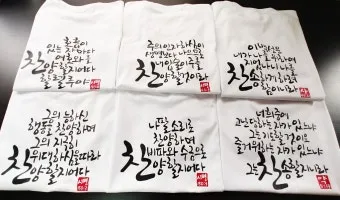 호흡이
있는 자마다
여호와를
찬양할지어다
할렐루야
주의 인자하심이
생명보다 나으므로
내 입술이 주를
찬양할 것이라
이 백성은
내가 나를 위하여
지었나니 나를
찬송하게 하려
함이니라
그의 능하신
행동을 찬양하며
그의 지극히
위대하심을 따라
찬양할지어다
나팔 소리로
찬양하며
비파와 수금으로
찬양할지어다
너희 중에
고난 당하는 자가 있느냐
그는 기도할 것이요
즐거워하는 자가 있느냐
그는 찬송할지니라